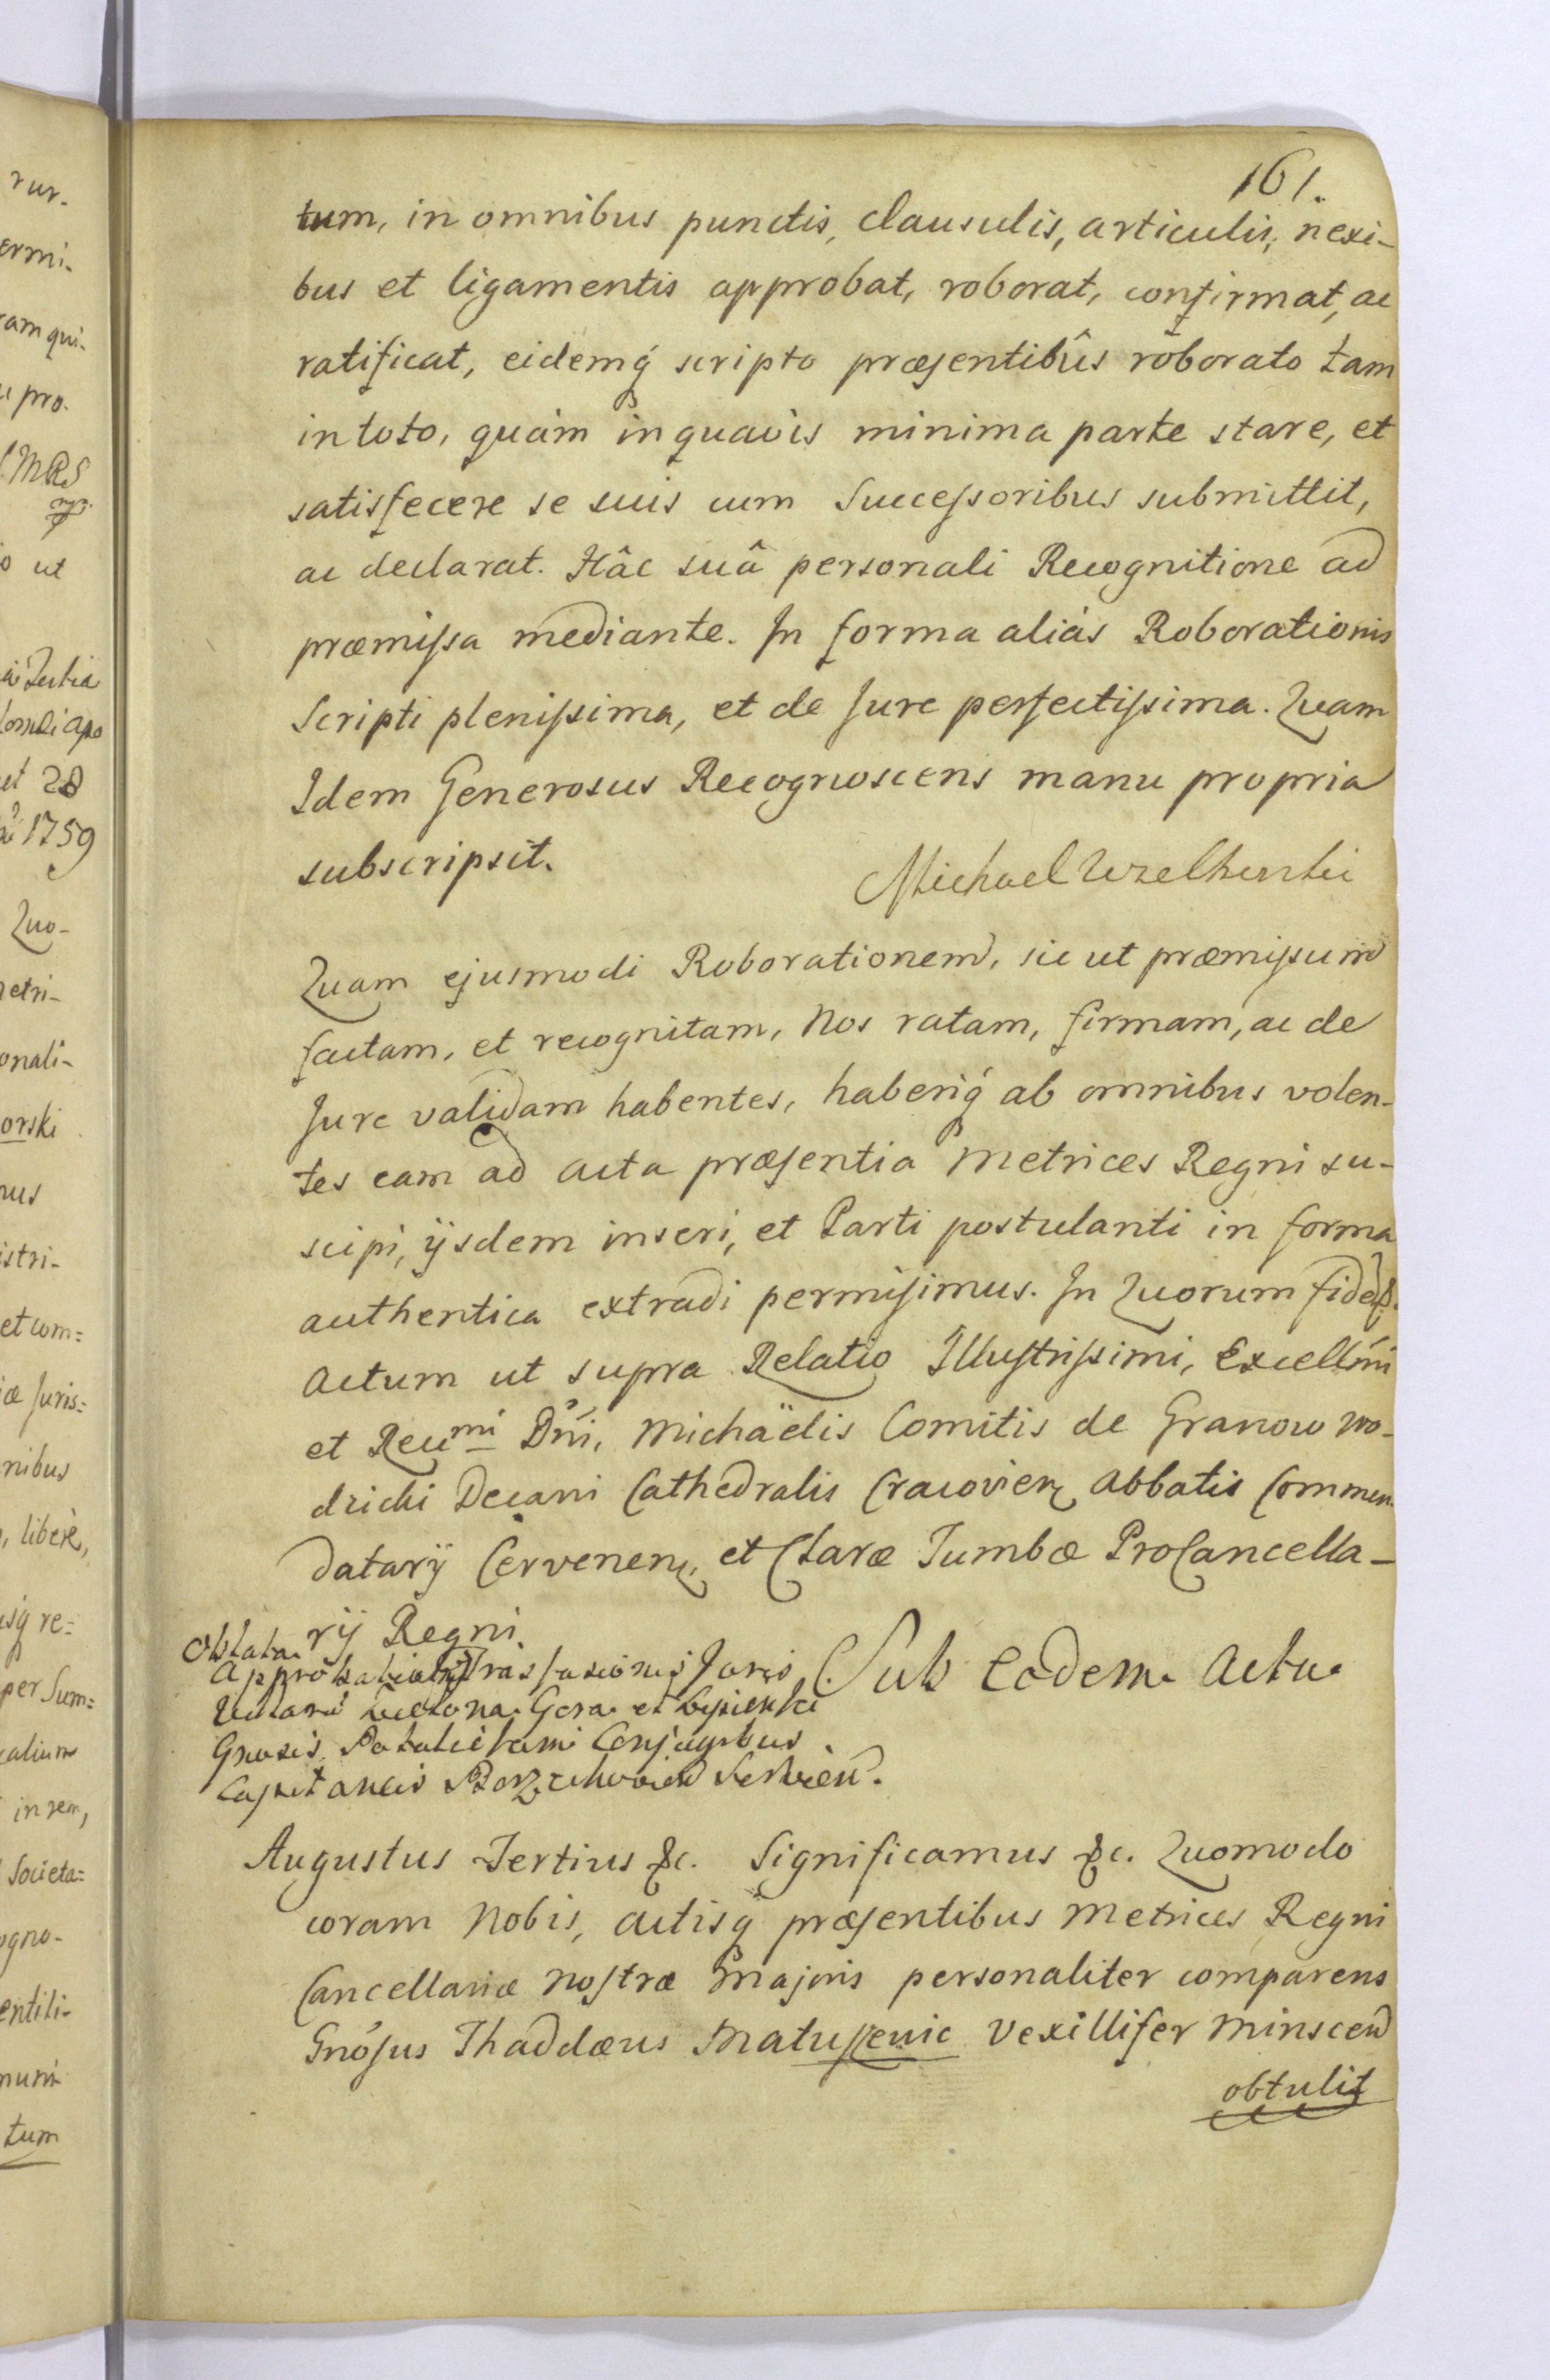 161.
tum, in omnibus punctis, clausulis, articulis, nexi-
bus et ligamentis approbat, roborat, confirmat, ac
ratificat, eidemq́ scripto præsentibûs roborato tam
in toto, quàm in quavis minima parte stare, et
satisfecere se suis cum Successoribus submittit,
ac declarat. Hâc suâ personali Recognitione ad
præmissa mediante. In forma aliàs Roborationis
Scripti plenissima, et de Jure perfectissima. Quam
Idem Generosus Recognoscens manu propria
subscripsit.
Michael
Quam ejusmodi Roborationem, sic ut præmissum
factam, et recognitam, Nos ratam, firmam, ac de
Jure validam habentes, haberiq́ ab omnibus volen-
tes eam ad acta præsentia Metrices Regni su-
scipi, ijsdem inseri, et Parti postulanti in forma
authentica extradi permisimus. In Quorum fidem.
Actum ut supra Relatio Illustrissimi, Excellmi
et Reumi Dni, Michäelis Comitis de Granow Wo-
dzicki Decani Cathedralis Cracovien Abbatis Commen-
datarij Cervenen, et Claræ Tumbæ ProCancella-
rij Regni.
Oblata
Approbationis Transfusionis Juris
Gora et
Gnosis Potulickim Conjugibus
Capitaneis Borzechovien Servien.
Sub Eodem Actu
Augustus Tertius &c. Significamus &c. Quomodo
coram Nobis, actisq præsentibus Metrices Regni
Cancellariæ Nostræ Majoris personaliter comparens
Gnosus Thaddæus Matussewic Vexillifer Minscen
obtulit
rur-
ermi-
ram qui-
pro.
MRS
o ut
et 28
1759
Quo-
etri-
onali-
orski
nus
istri-
et com=
Juris=
nibus
, liberè,
re=
per Sum=
calium
in rem,
Societa=
ogno-
entili-
tum